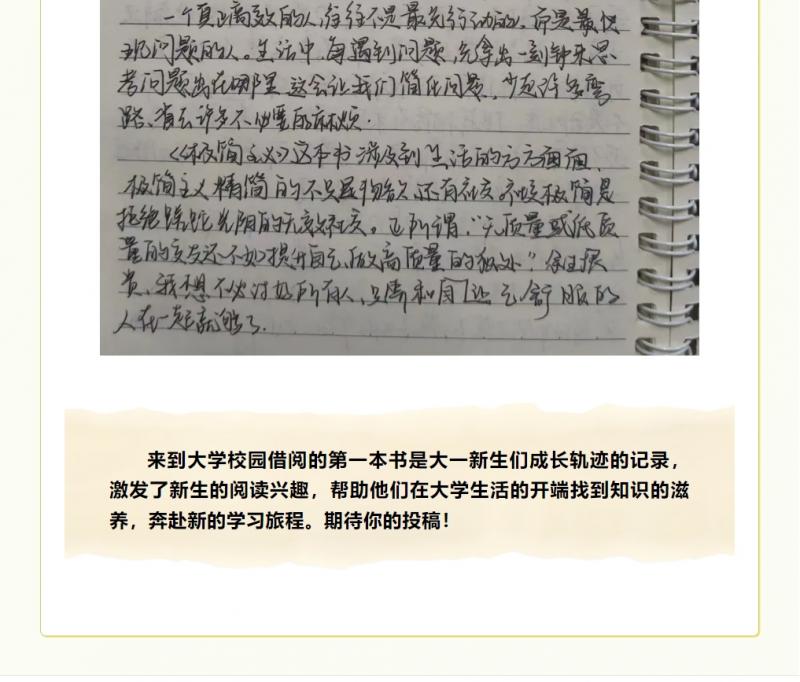 一个真正高效的人,往往不是最先行动的,而是最快
现问题的人。生活中,每遇到问题,先拿出一刻钟来思
考问题出在哪里,这会让我们简化问题,少走许多弯
路、省去许多不必要的麻烦.
《极简主义》这本书涉及到生活的方方面面、
极简主义精简的不只是物欲,还有社交.社交极简是
拒绝蹉跎光阴的无效社交。正所谓,“无质量或低质
量的交友还不如提升自己,做高质量的独处”
贵、我想不必讨好所有人,只需和自己舒服的
人在一起就够了.
来到大学校园借阅的第一本书是大一新生们成长轨迹的记录,
激发了新生的阅读兴趣,帮助他们在大学生活的开端找到知识的滋
养,奔赴新的学习旅程。期待你的投稿!